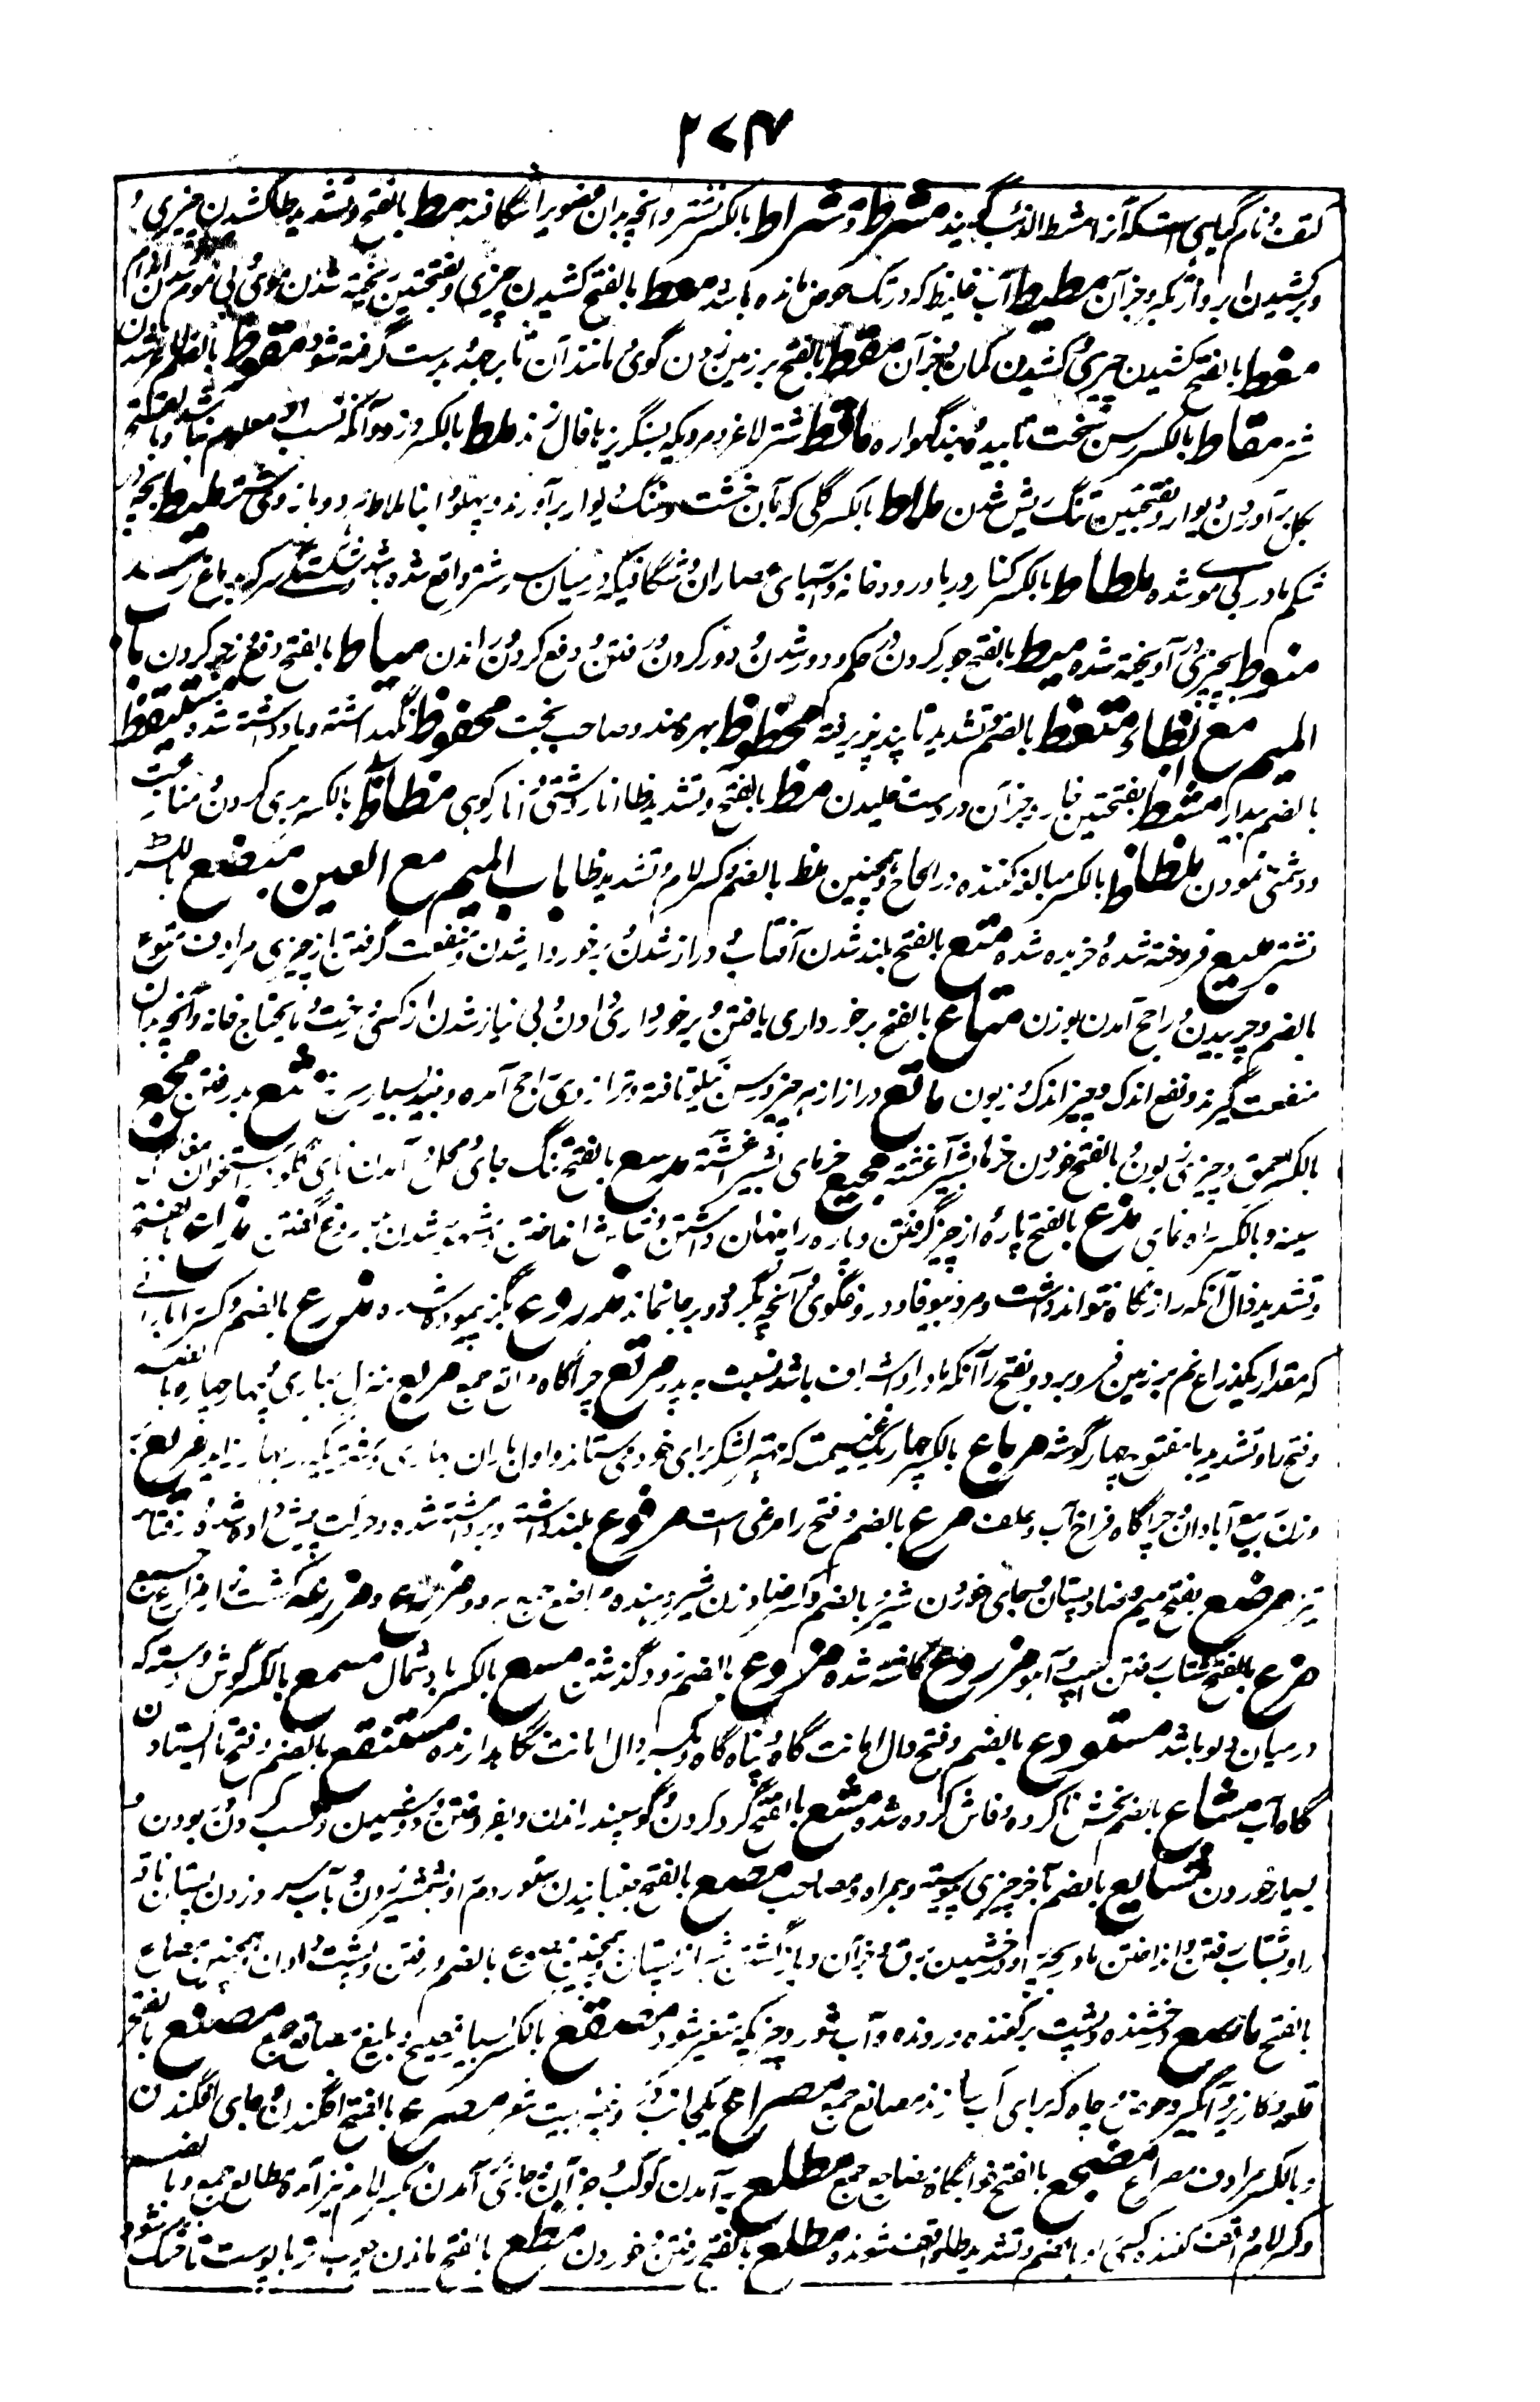 ۲۷۴
کتف و نام گیاهی است که آنرا مشط الذئب گویند مشرط و مشراط بالکسر نشتر و آنچه بدان عضو را شگافند مط بالفتح و تشدید طا کشیدن چیزی
و برکشیدن ابرو از تکبر و جز آن مطیط آب غلیظ که در تگ حوض مانده باشد معط بالفتح کشیدن چیزی و بفتحتین ریخته شدن موی و بی موی شدن اندام
مغط بالفتح کشیدن چیزی و کشیدن کمان و جز آن مقط بالفتح بر زمین زدن گوی و مانند آن تا برجهد و بدست گرفته شود مقوط بالضم لاغر شدن
شتر مقاط بالکسر رسن سخت تابیده و بند گهواره ماقط شتر لاغر و مردیکه بسنگریزها فال زند ملط بالکسر دزد و آنکه نسب او معلوم نباشد و بالفتح
بگل برآوردن دیوار و بفتحتین تنگ ریش شدن ملاط بالکسر گلی که بآن خشت و سنگ دیوار برآورند و پهلو ابنا ملاط هر دو بازوی شتر ملیط بچه در
شکم مادر بی مو شده ملطاط بالکسر کنار دریا و رودخانه و آسیای عصاران و شگافیکه در میان سر شتر واقع شده باشد و شکستگی سر که بدماغ رسد
منوط بچیزی در آویخته شده میط بالفتح جور کردن در حکم و دور شدن و دور کردن و رفتن و دفع کردن و راندن میاط بالفتح دفع و زجر کردن باب
المیم مع الظاء متعظ بالضم و تشدید تا پند پذیرفته محظوظ بهره مند و صاحب بخت محفوظ نگهداشته و یاد داشته شده مستیقظ
بالضم بیدار مشظ بفتحتین خار و جز آن در دست خلیدن مظ بالفتح و تشدید ظا انار دشتی و انار کوهی مظاظ بالکسر بدی کردن و منازعت
و دشمنی نمودن ملظاظ بالکسر مبالغه کننده در الحاح و همچنین ملظ بالضم و کسر لام و تشدید ظا باب المیم مع العین مبضع بالکسر
نشتر مبیع فروخته شده و خریده شده متع بالفتح بلند شدن آفتاب و دراز شدن و برخوردار شدن و منفعت گرفتن از چیزی مرادف متوع
بالضم و چربیدن و راجح آمدن بوزن متاع بالفتح برخورداری یافتن و برخورداری دادن و بی نیاز شدن از کسی و رخت و مایحتاج خانه و آنچه بدان
منفعت گیرند و نفع اندک و چیز اندک و زبون ماتع دراز از هر چیز و رسن نیکو تافته و ترازوی راجح آمده و نبیذ بسیار سرخ مثع بد رفتن مجع
بالکسر احمق و چیز زبون و بالفتح خوردن خرما بشیر آغشته مجیع خرمای بشیر آغشته مدسع بالفتح تنگ جای و محل در آمدن نای گلو در استخوان مغاک
سینه و بالکسر راه نمای مذع بالفتح پارهٔ از چیز گرفتن و پاره را پنهان داشتن و شاش انداختن و شهره شدن بدروغ گفتن مذاع بالفتح
و تشدید ذال آنکه راز نگاه نتواند داشت و مرد بیوفا و دروغگوی و آنچه بگردد و بر جا نماند مذروع بگز پیموده شده مذرع بالضم و کسر را بارانی
که مقدار یکذراع نم بر زمین فرو برد و بفتح را آنکه مادر او اشراف باشد نسبت به پدر مرتع چراگاه مراتع جمع مربع منزل بهاری و بهار و چهاره بالضم
و فتح را و تشدید با مفتوح چهار گوشه مرباع بالکسر چاریک غنیمت که مهتر لشکر برای خود می ستاند و اول باران بهاری و شتریکه در بهار زاید مریع
وزن ربیع آبادان و چراگاه فراخ آب و علف مرع بالضم و فتح را مرغی است مرفوع بلند داشته و برداشته شده و حرکت پیش داده شده و رفتار
تیز مرضع بفتح میم و ضاد پستان و جای خوردن شیر و بالضم و کسر ضاد زن شیر دهنده مراضع جمع هر دو مزرع و مزرعه کشت زار مزارع جمع
مزع بالفتح شتاب رفتن اسپ و آهو مزروع کاشته شده مزوع بالضم زود گذشتن مسع بالکسر باد شمال مسمع بالکسر گوش و دسته که
در میان دلو باشد مستودع بالضم و فتح دال امانت گاه و پناه گاه و بکسر دال امانت نگاه دارنده مستنقع بالضم و فتح تا ایستادن
گاه آب مشاع بالضم بخش ناکرده و فاش کرده شده مشع بالفتح گرد کردن و گوسپند راندن و باد فرو رفتن و دوشیدن و کسب کردن و ربودن و
بسیار خوردن مشایع بالضم تا آخر چیزی پیوسته و همراه و مصاحب مصع بالفتح جنبانیدن ستور دم او و شمشیر زدن و بآب سرد زدن پستان ناقه
را و شتاب رفتن و انداختن مادر بچه را و درخشیدن برق و جز آن و بازگشتن شیر از پستان و همچنین مصوع بالضم و رفتن و پشت دادن همچنین مصاع
بالفتح ماصع درخشنده و پشت برگفنده و رونده و آب شور و چیزیکه متغیر شود مصقع بالکسر بسیار فصیح و بلیغ مصاقع جمع مصنع بالفتح
قلعه و کاریز و آبگیر و حوض و چاه که برای آب سازند مصانع جمع مصراع یکجانب در و نیمه بیت شعر مصرع بالفتح افگندن و جای افگندن
و بالکسر مرادف مصراع مضجع بالفتح خوابگاه مضاجع جمع مطلع برآمدن کوکب و جز آن و جای برآمدن و بکسر لام نیز آمده مطالع جمع و بالضم
و کسر لام واقف کننده کسی را و بالضم و تشدید طا واقف شونده مطلع بالفتح رفتن و خوردن مظع بالفتح ماندن چوب تر با پوست تا خشک شود